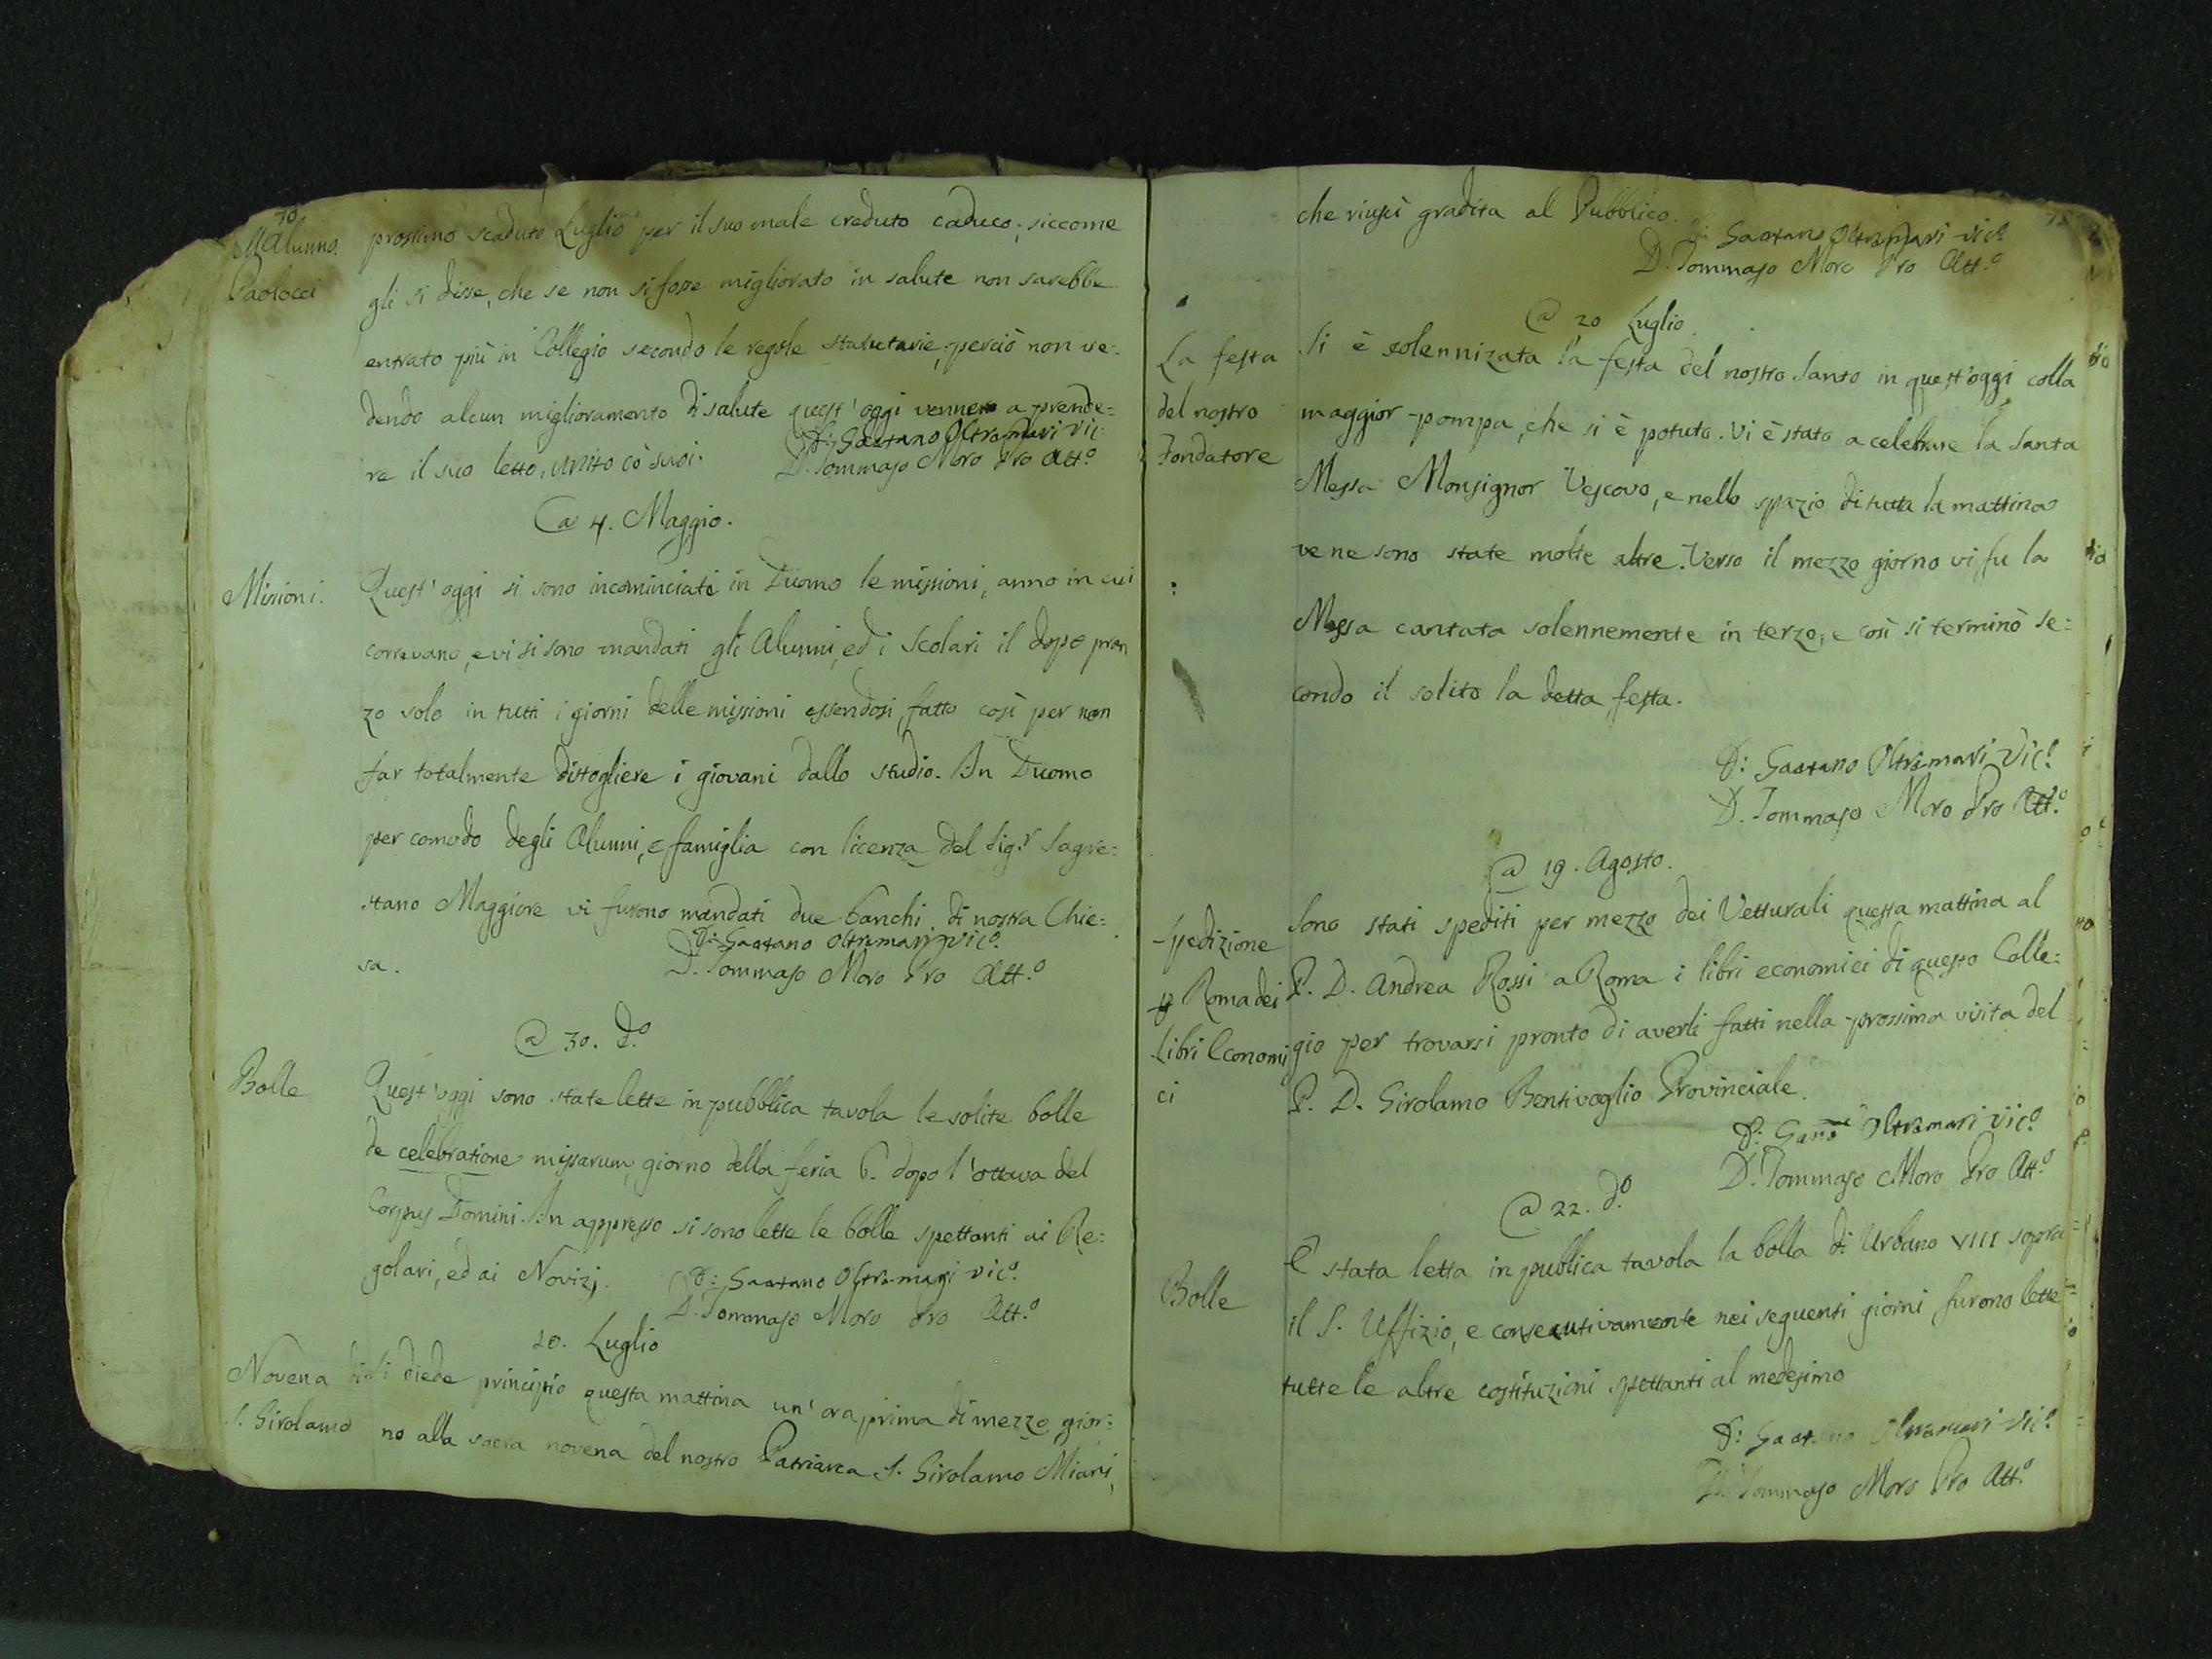 70
Alunno
Paolocci
prossimo scaduto Luglio per il suo male creduto caduco; siccome
gli si disse, che se non si fosse migliorato in salute non sarebbe
entrato più in Collegio secondo le regole statutarie; perciò non ve=
dendo alcun miglioramento di salute quest'oggi vennero a prende=
re il suo letto, unito cò suoi.
D: Gaetano Oltremari Vic:
D. Tommaso Moro Pro Att.o
@ 4. Maggio.
Missioni.
Quest'oggi si sono incominciate in Duomo le missioni, anno in cui
correvano, e vi si sono mandati gli Alunni, ed i Scolari il dopo pran
zo solo in tutti i giorni delle missioni essendosi fatto così per non
far totalmente distogliere i giovani dallo studio. In Duomo
per comodo degli Alunni, e famiglia con licenza del Sig.r Sagre=
stano Maggiore vi furono mandati due banchi di nostra Chie=
sa.
D: Gaetano Oltremari Vic.o
D. Tommaso Moro Pro Att.o
@ 30. d.o
Bolle
Quest'oggi sono state lette in pubblica tavola le solite bolle
de celebratione missarum, giorno della feria 6. dopo l'ottava del
Corpus Domini. In appresso si sono lette le bolle spettanti ai Re=
golari, ed ai Novizj.
D: Gaetano Oltremari Vic.o
D. Tommaso Moro Pro Att.o
10. Luglio
Novena di
S. Girolamo
Si diede principio questa mattina un'ora prima di mezzo gior=
no alla sacra novena del nostro Patriarca S. Girolamo Miani,
che riuscì gradita al Pubblico.
D: Gaetano Oltremari Vic.o
D. Tommaso Moro Pro Att.o
@ 20 Luglio.
La festa
del nostro
Fondatore
Si è solennizata la festa del nostro Santo in quest'oggi colla
maggior pompa, che si è potuto. Vi è stato a celebrare la Santa
Messa Monsignor Vescovo, e nello spazio di tutta la mattina
ve ne sono state molte altre. Verso il mezzo giorno vi fu la
Messa cantata solennemente in terzo, e così si terminò se=
condo il solito la detta festa.
D: Gaetano Oltremari Vic.o
D. Tommaso Moro Pro Att.o
@ 19. Agosto.
Spedizione
p Roma dei
Libri Economi
ci
Sono stati spediti per mezzo dei Vetturali questa mattina al
P. D. Andrea Rossi a Roma i libri economici di questo Colle=
gio per trovarsi pronto di averli fatti nella prossima visita del
P. D. Girolamo Bentivoglio Provinciale.
D: Gano Oltremari Vic.o
D. Tommaso Moro Pro Att.o
@ 22. d.o
Bolle
È stata letta in publica tavola la bolla di Urbano VIII sopra
il S. Uffizio, e consecutivamente nei seguenti giorni furono lette
tutte le altre costituzioni spettanti al medesimo
D: Gaetano Oltremari Vic.o
D. Tommaso Moro Pro Att.o